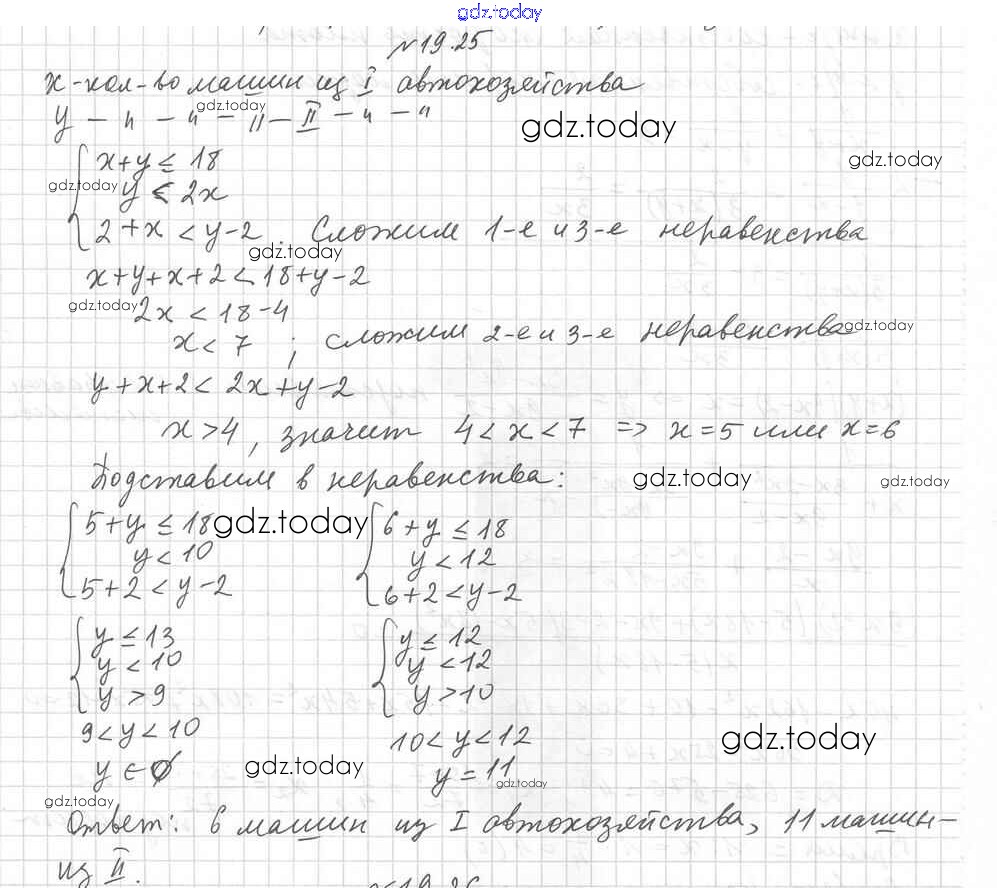 gdz.today
№19.25
x-кол-во машин из I автохозяйства
gdz.today
y - " - " - II - II - " - "
gdz.today
x+y ≤ 18
gdz.today
gdz.today
y < 2x
2+x < y-2. Сложим 1-е и 3-е неравенства
gdz.today
x+y+x+2 < 18+y-2
gdz.today
2x < 18-4
x < 7 ; сложим 2-е и 3-е неравенства
gdz.today
y+x+2 < 2x+y-2
x > 4, значит 4 < x < 7 => x=5 или x=6
Подставим в неравенства:
gdz.today
gdz.today
5+y ≤ 18 6+y ≤ 18
gdz.today
y < 10 y < 12
5+2 < y-2 6+2 < y-2
y ≤ 13 y ≤ 12
y < 10 y < 12
y > 9 y > 10
9 < y < 10 10 < y < 12
gdz.today
y ∈ ∅ y = 11
gdz.today
gdz.today
gdz.today
Ответ: 6 машин из I автохозяйства, 11 машин-
из II.